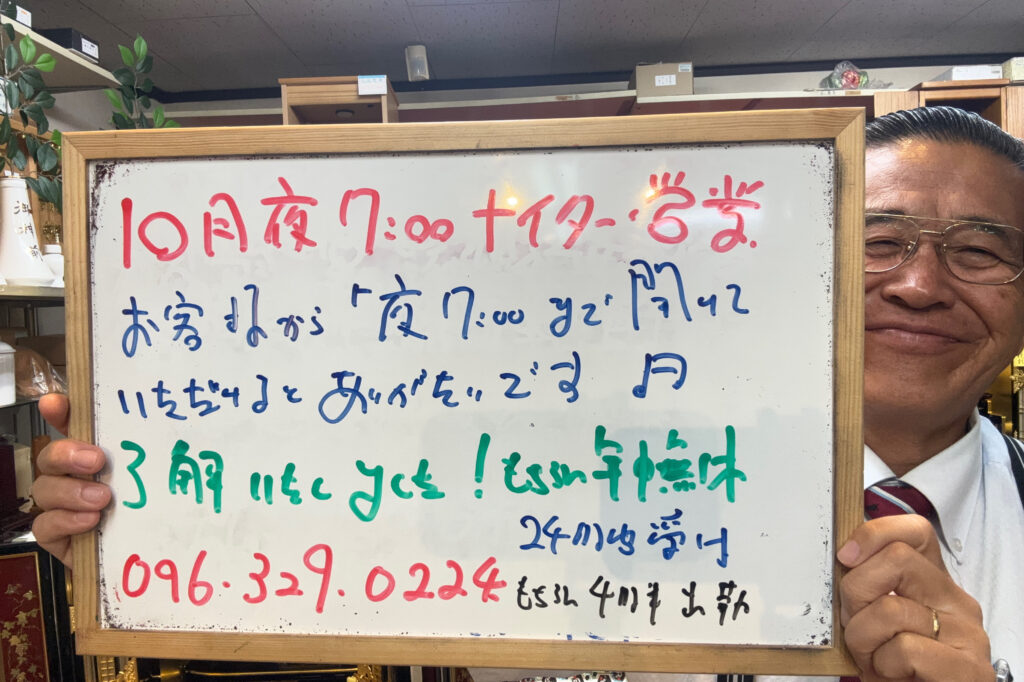 10月夜7:00ナイター営業.
お客様から「夜7:00まで開けて
いただけるとありがたいです」
了解いたしました!もちろん年中無休
24時間受付
096.329.0224 もちろん4時半出勤